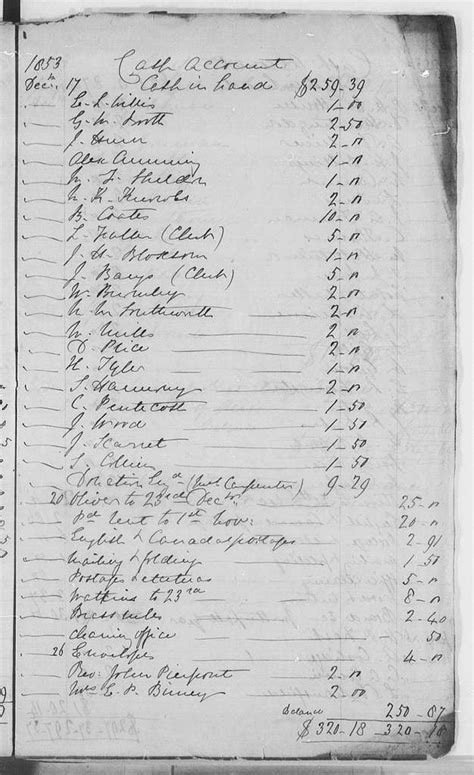 1853 Cash Account
Decr 17 Cash in hand $259-39
E. L. Willis 1-00
G. W. Booth 2-50
J. Hunn 2-n
Alex Cumming 2-n
W. L. Sheldon 1-n
W. H. Knowles 2-n
B. Coates 10-n
L. Fuller (Club) 5-n
J. H. Bloxsom 1-n
J. Bays (Club) 5-n
W. Burnley 2-n
W. W. Southworth 2-n
W. Mills 2-n
D. Price 2-n
H. Tyler 1-n
S. 2-n
C. Pentecost 1-50
J. Wood 1-50
J. Scarret 1-50
S. Collins 1-50
Donation (Carpenter) 9-29
20 Oliver to 23rd Decr 25-n
pd rent to 1st Nov: 20-n
English & Canada postages 2-91
Mailing & folding 1-50
Postage & 5-n
Watkins to 23rd 8-n
Brass rules 2-40
cleaning office 50
26 Envelopes 4-n
Rev: John Pierpont 2-n
Mrs E. P. Burney 2-00
Balance 250-87
$320-18 320-18